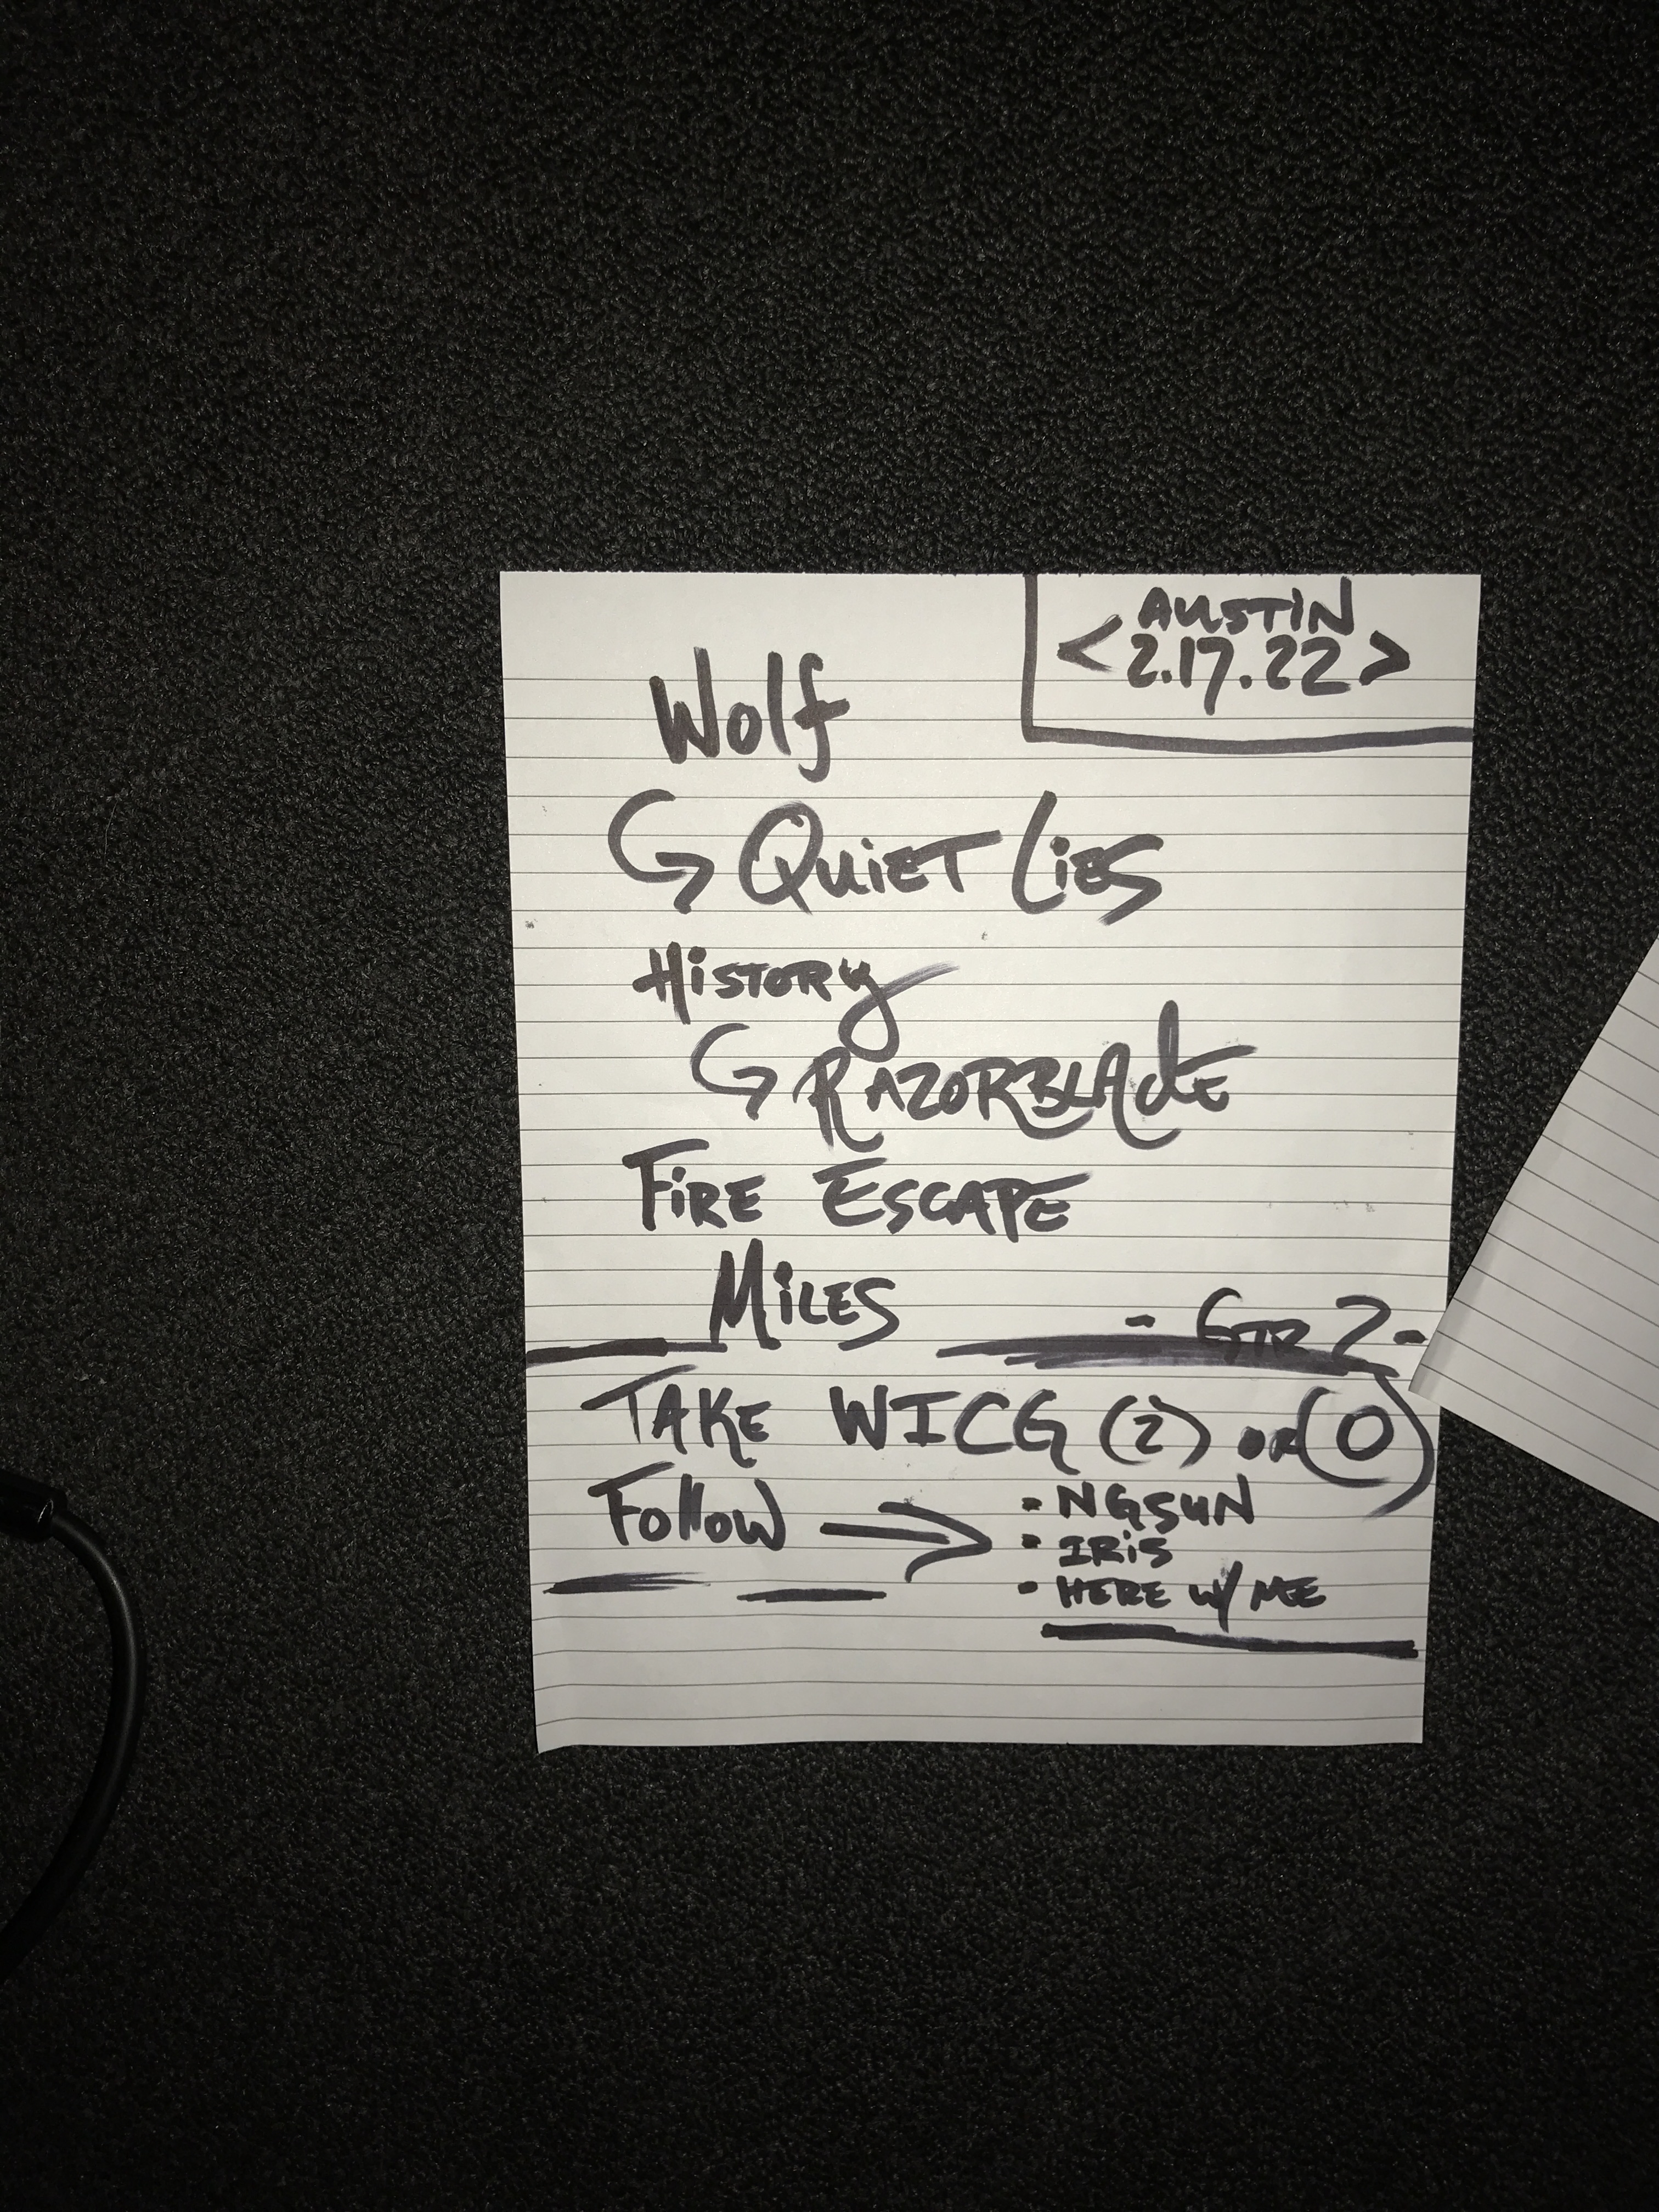 AUSTIN
<2.17.22>
Wolf
QUiET LiES
HiSTORy
RAZORBLAdE
FiRE ESCAPE
MiLES
- GTR 2 -
TAKE WICG (2) OR (O)
Follow → • NGSUN
• IRiS
• HERE W/ ME